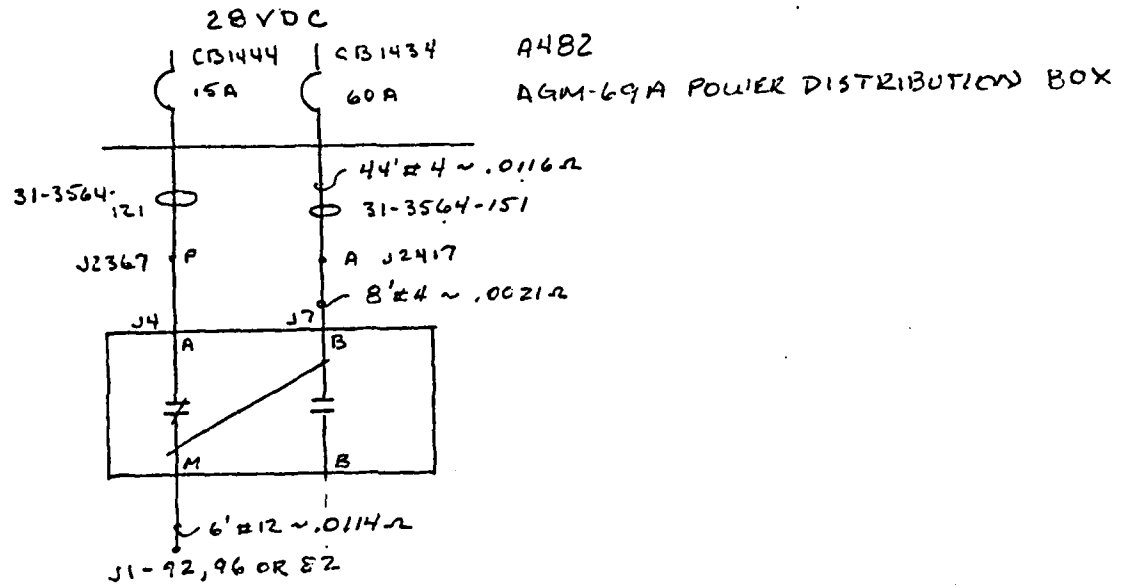 28 VDC
CB1444
CB1434
A482
15A
60A
AGM-69A POWER DISTRIBUTION BOX
44' #4 ~ .0116Ω
31-3564-
121
31-3564-151
J2367
P
A J2417
8' #4 ~ .0021Ω
J4
J7
A
B
M
B
6' #12 ~ .0114Ω
J1-92, 96 OR E2